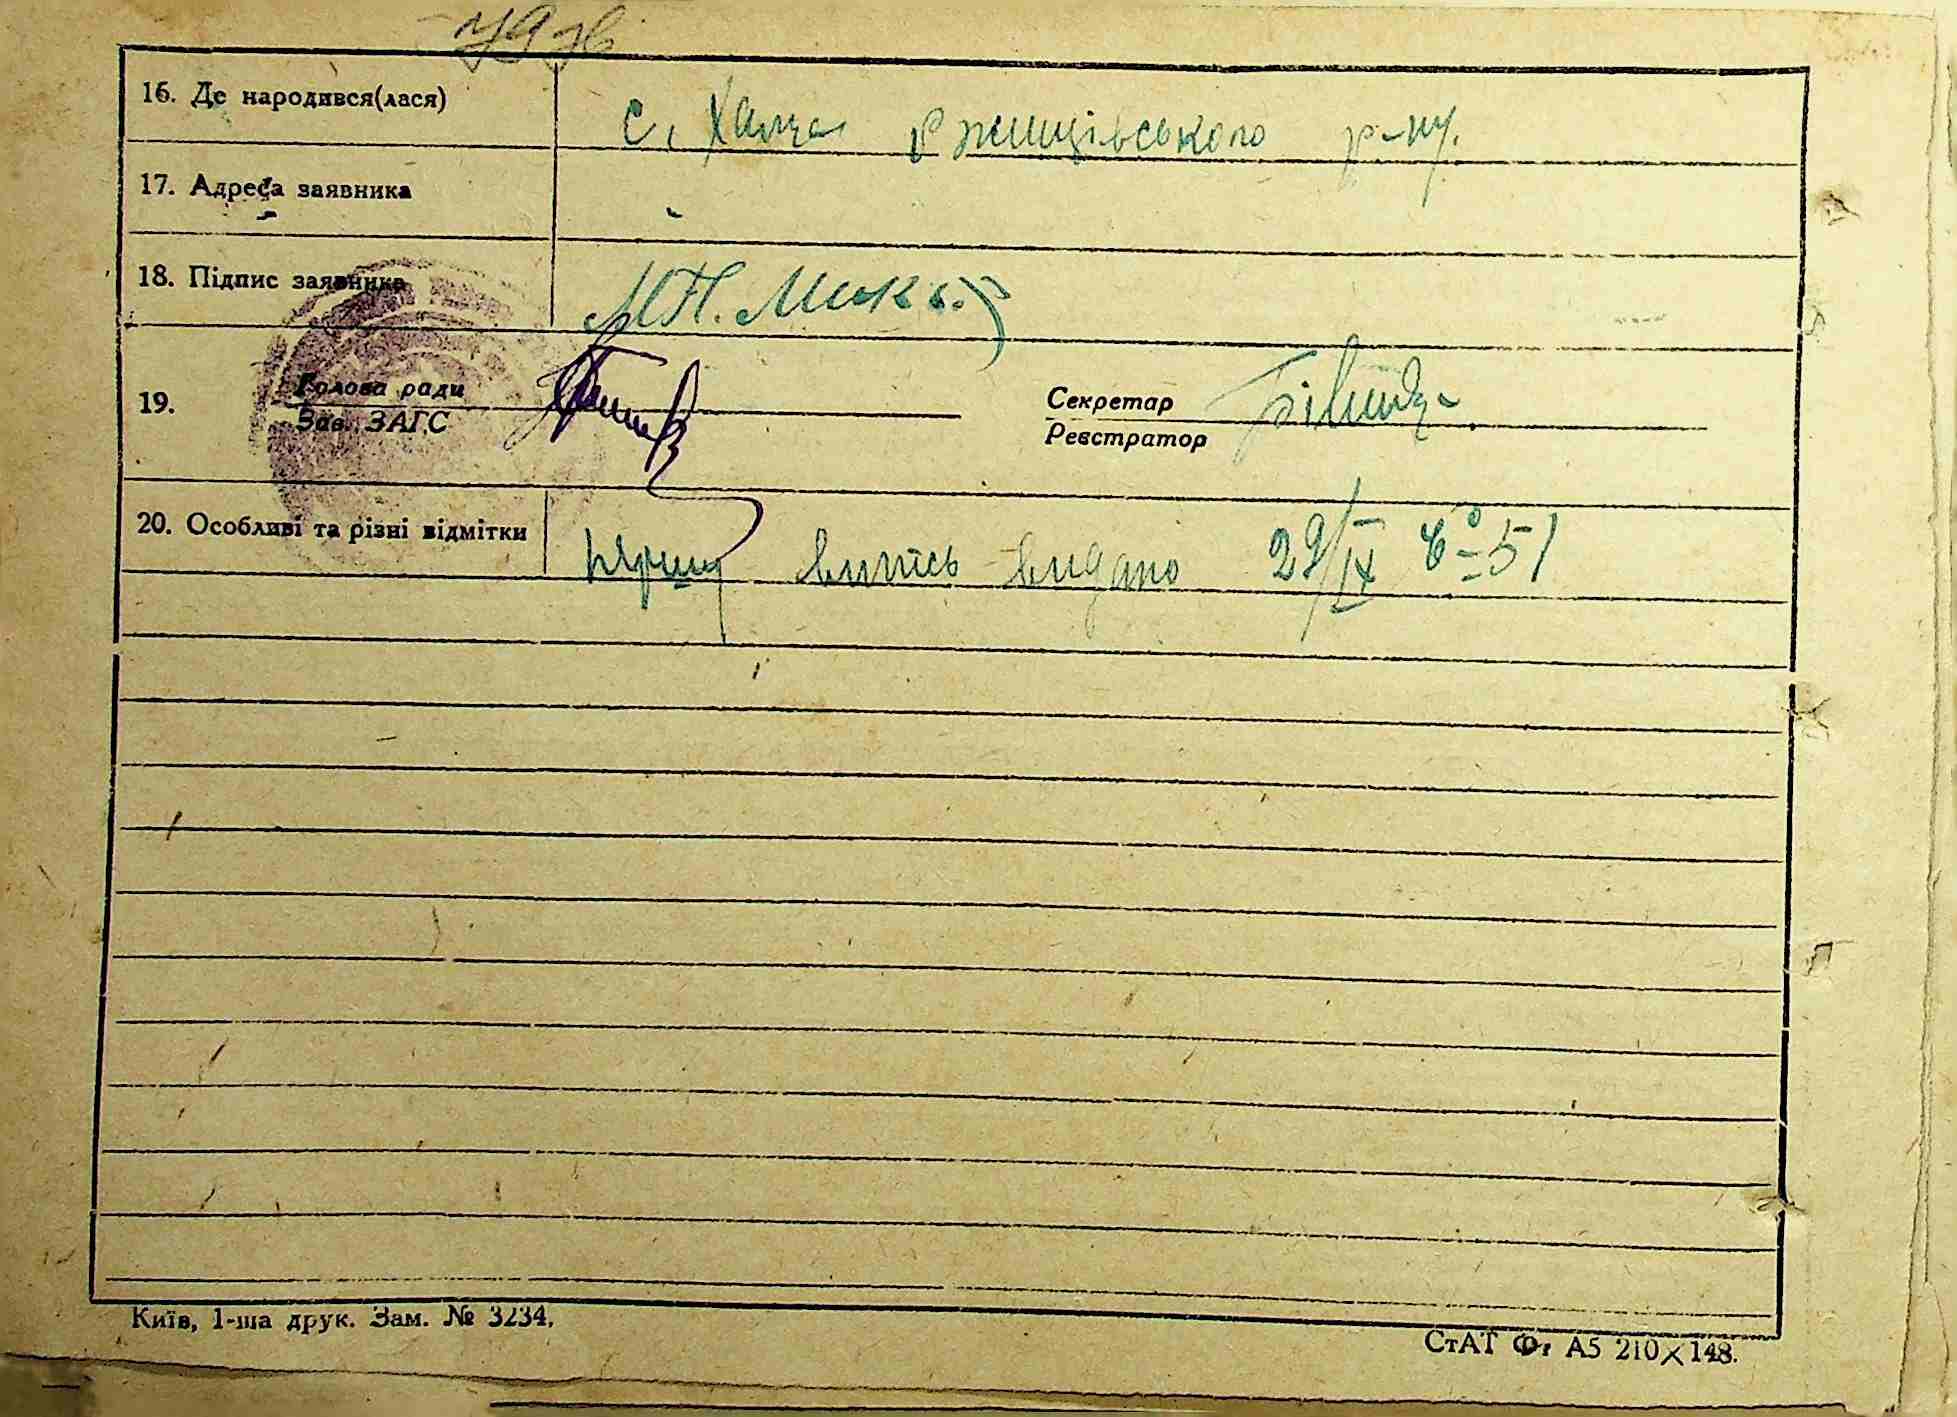 16. Де народився(лася) с. Халча Ржищівського р-ну.
17. Адреса заявника
18. Підпис заявника
Голова ради Секретар
19.
Зав. ЗАГС Реєстратор
20. Особливі та різні відмітки першу випись видано 29/IX 6°-51
Київ, 1-ша друк. Зам. № 3234.
СтАТ Ф. А5 210×148.